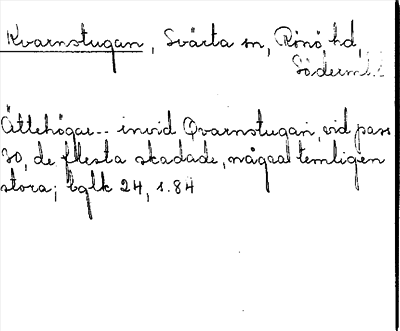 Kvarnstugan, Svärta sn, Rönö hd,
Söderml.
Ättehögar -- invid Qvarnstugan, vid pass
30, de flesta skadade, några temligen
stora; bglk 24, s. 84